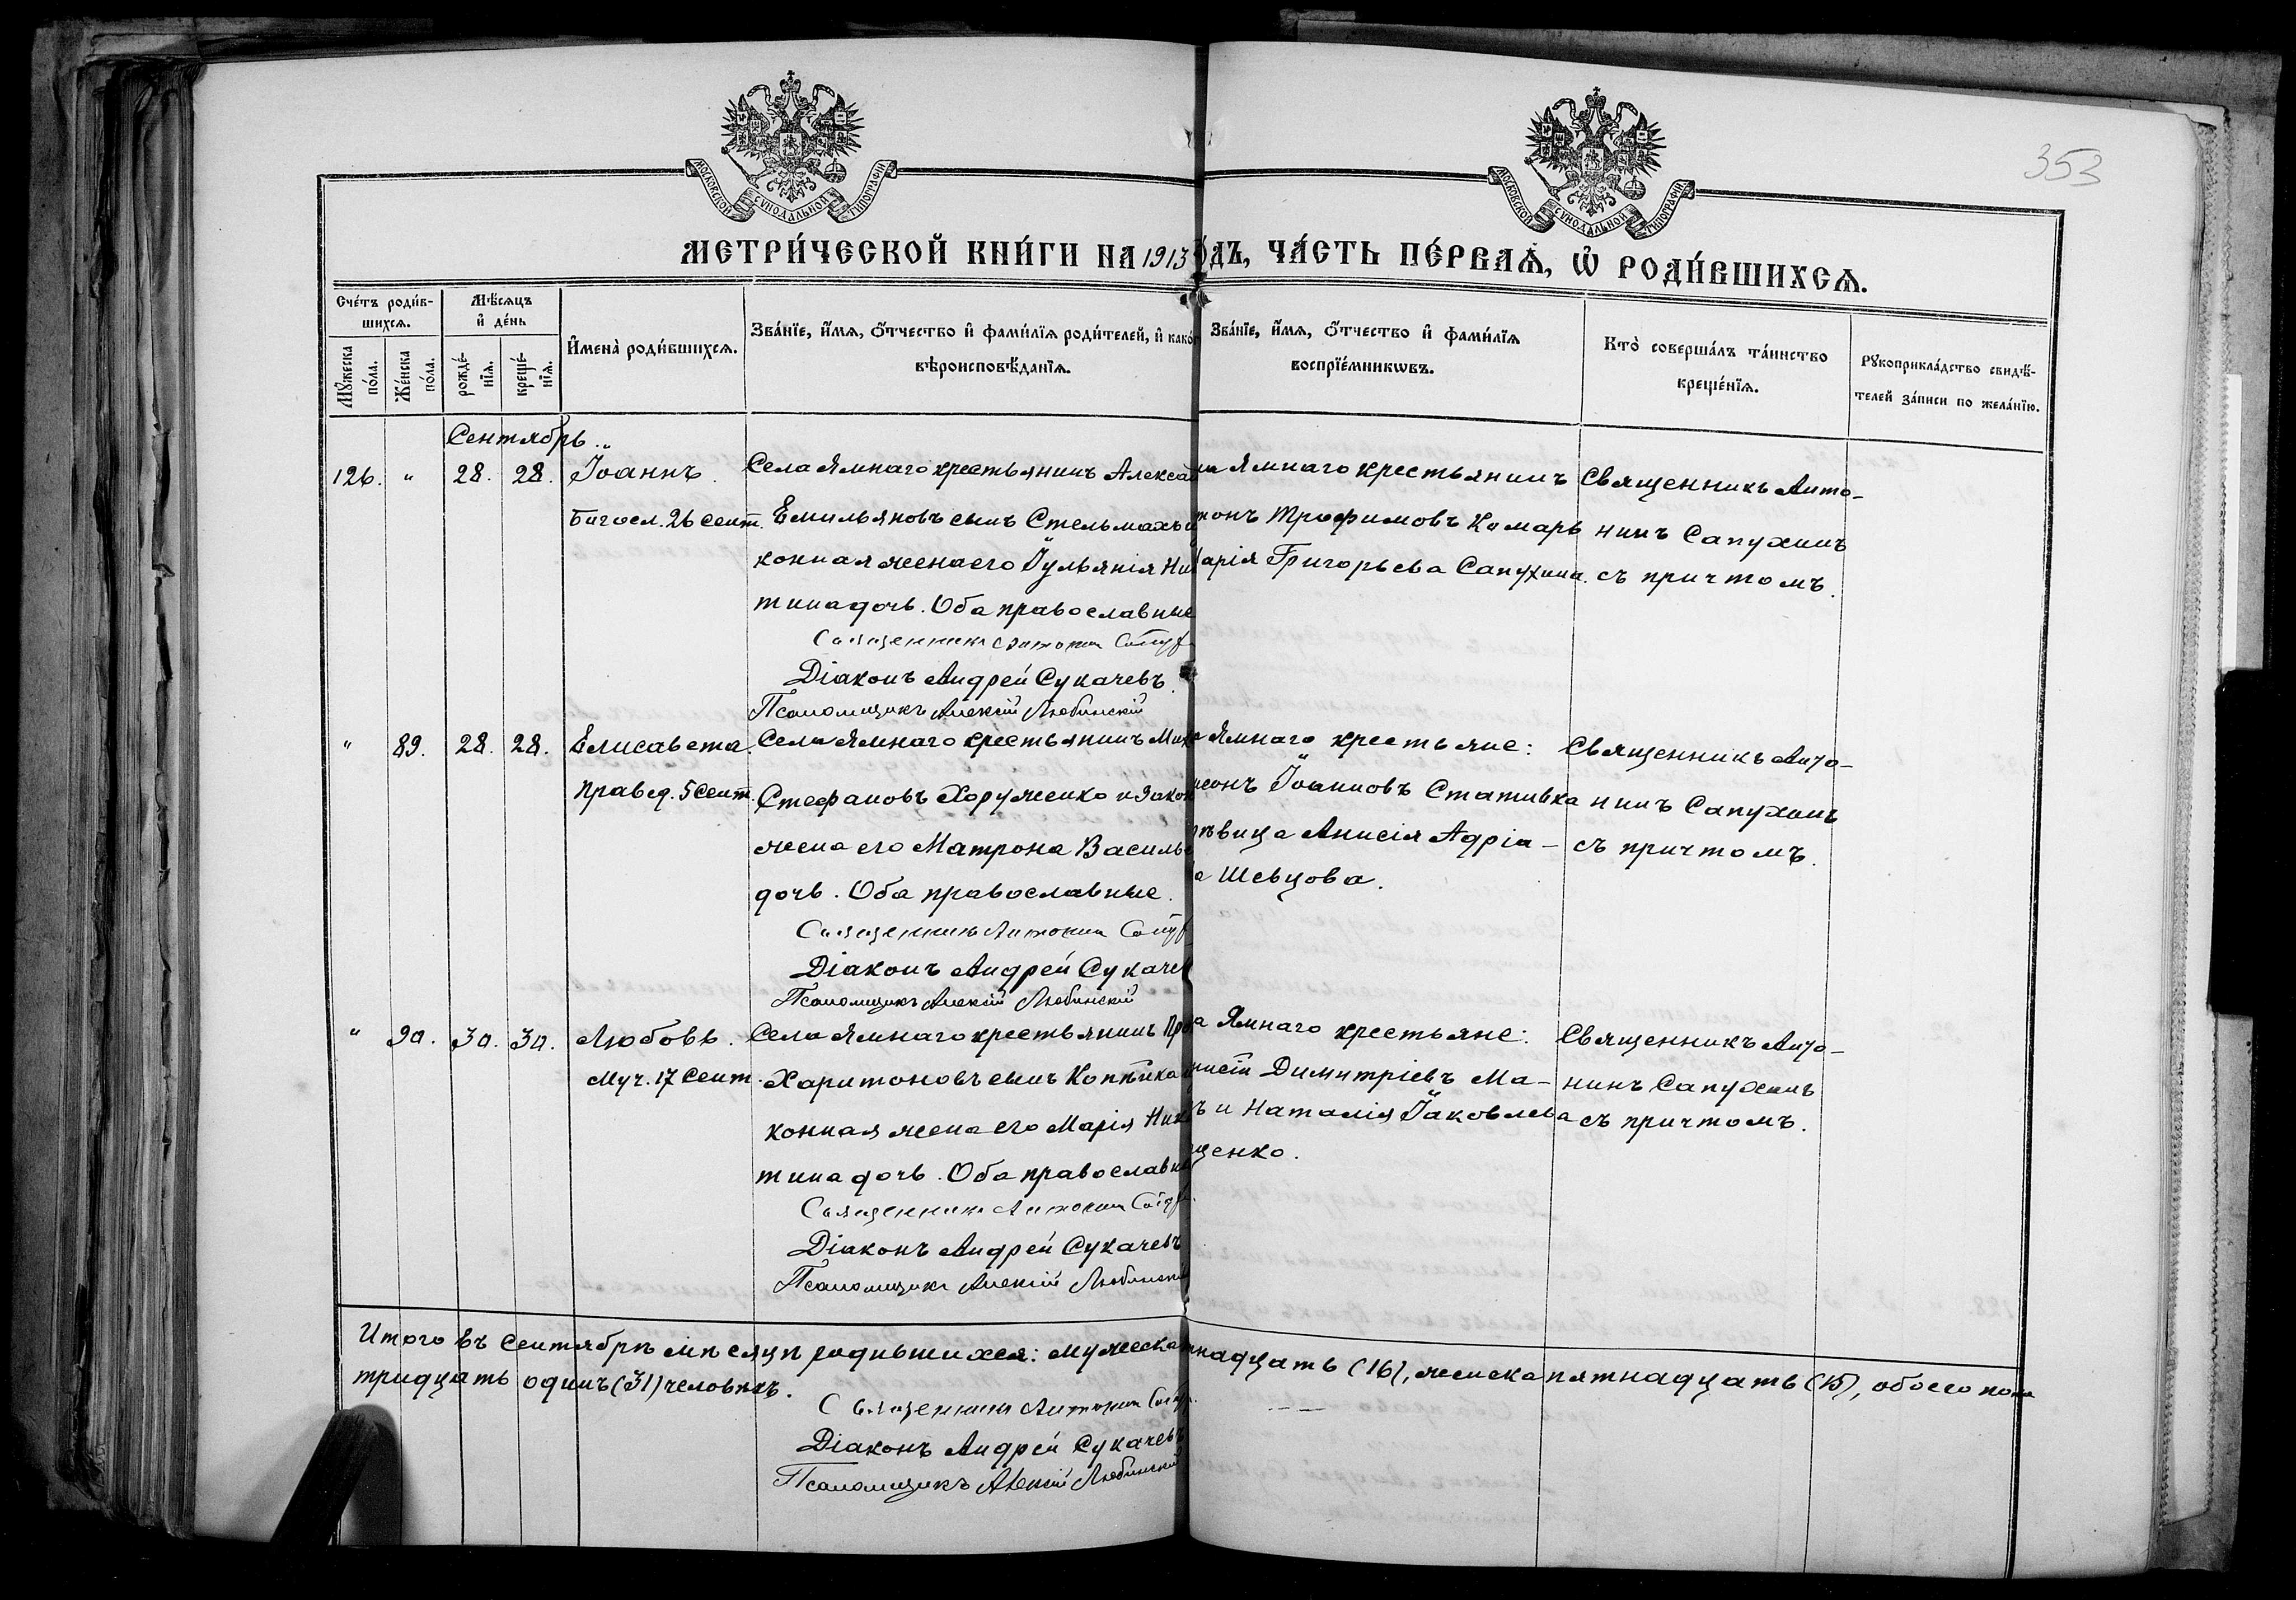 353
МОСКОВСКОЙ СѴНОДАЛЬНОЙ ТИПОГРАФІИ
МОСКОВСКОЙ СѴНОДАЛЬНОЙ ТИПОГРАФІИ
МЕТРИ́ЧЕСКОЙ КНИ́ГИ НА 1913 ДЪ, ЧА́СТЬ ПЕ́РВАѦ, Ѡ҆ РОДИ́ВШИХСѦ.
Сче́тъ роди́в-
шихсѧ.
Мꙋ́жеска по́ла.
Же́нска по́ла.
Мѣ́сяцъ
и҆ де́нь
рожде́-нїѧ.
креще́-нїѧ.
И҆мена̀ роди́вшихсѧ.
Зва́нїе, и҆́мѧ, ѻ҆́тчество и҆ фами́лїѧ роди́телей, и҆ како́
вѣроисповѣ́данїѧ.
Зва́нїе, и҆́мѧ, ѻ҆́тчество и҆ фами́лїѧ
воспрїе́мникѡвъ.
Кто̀ соверша́лъ та́инство
креще́нїѧ.
Рꙋкоприкла́дство свидѣ́-
телей за́писи по жела́нїю.
Сентябрь.
126. " 28. 28. Іоаннъ.
Богосл. 26 сент.
Села Ямнаго крестьянинъ Алекса
Емильяновъ сынъ Стельмахъ и
конная жена его Іульянія Ни
тина дочь. Оба православные
Священникъ Антонин
Діаконъ Андрей Сукачевъ.
Псаломщикъ Алексій Любинскій
Ямнаго крестьянинъ
тонъ Трофимовъ Комаръ
арія Григорьева Сапухина.
Священникъ Анто-
нинъ Сапухинъ
съ причтомъ.
" 89. 28. 28. Елисавета.
Правед. 5 Сент.
Села Ямнаго крестьянинъ Ми
Стефановъ Хоруженко и закон
жена его Матрона Василье
дочь. Оба православные.
Священникъ Антонин
Діаконъ Андрей Сукачев
Псаломщикъ Алексій Любинскій
а Ямнаго крестьяне:
Іоанновъ Стативка
ѣвица Анисія Адріа-
а Шевцова.
Священникъ Анто-
нинъ Сапухинъ
съ причтомъ.
" 90. 30. 30. Любовь.
Муч. 17 Сент.
Села Ямнаго крестьянинъ Про
Харитоновъ сынъ Копѣйка
конная жена его Марія Ник
тина дочь. Оба православн
Священникъ Антонин
Діаконъ Андрей Сукачевъ
Псаломщикъ Алексій Любинскій
а Ямнаго крестьяне:
нисій Димитріевъ Ма-
ъ и Наталія Іаковлева
щенко.
Священникъ Анто-
нинъ Сапухинъ
съ причтомъ.
Итого въ Сентябрѣ мѣсяцѣ родившихся: мужеска надцать (16), женска пятнадцать (15), обоего пола
тридцать одинъ (31) человѣкъ.
Священникъ Антонин
Діаконъ Андрей Сукачевъ
Псаломщикъ Алексій Любинскій